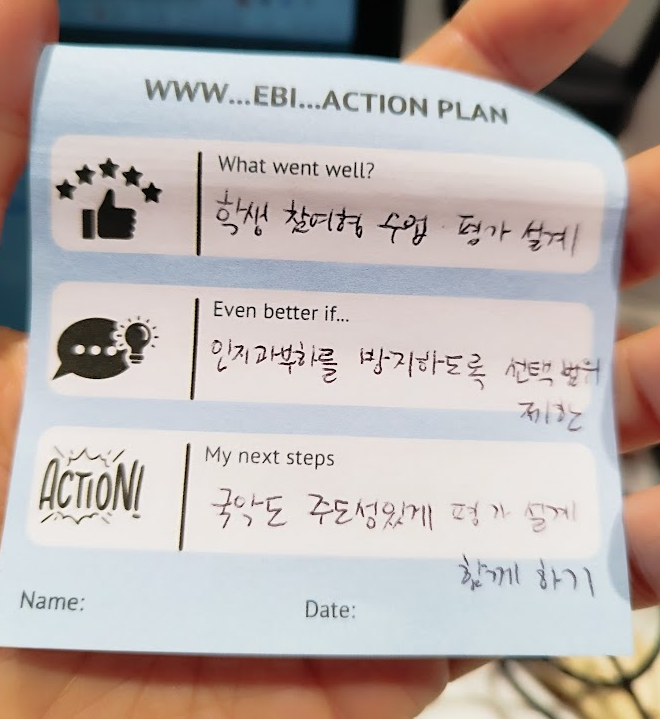 WWW...EBI...ACTION PLAN
What went well?
학생 참여형 수업 · 평가 설계
Even better if...
인지과부하를 방지하도록 선택 범위
제한
ACTION!
My next steps
국악도 주도성있게 평가 설계
함께 하기
Name:
Date: